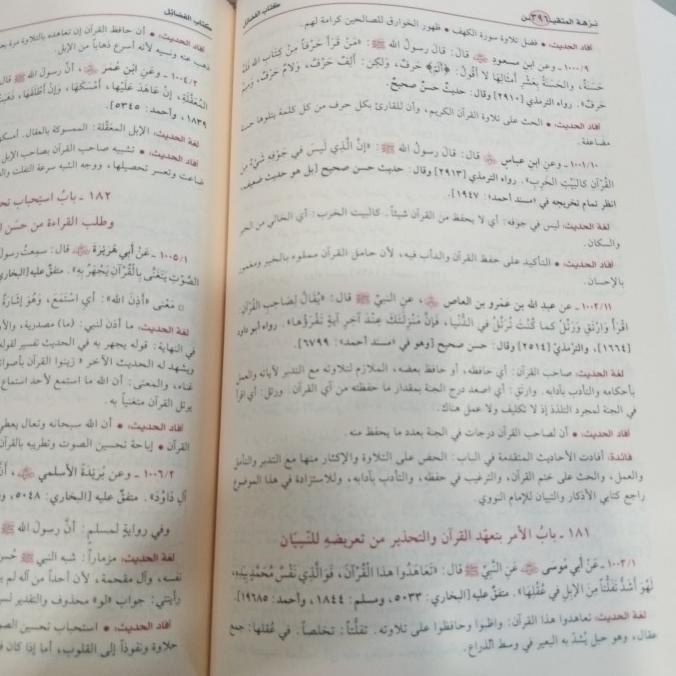 كتاب الفضائل
٣٩٦
نزهة المتقين
أفاد الحديث: * فضل تلاوة سورة الكهف * ظهور الخوارق للصالحين كرامة لهم.
١٠٠٠/٩ - وعن ابن مسعود ﵁ قال: قال رسولُ الله ﷺ: «مَنْ قَرَأَ حَرْفاً مِنْ كِتَاب الله فَلَهُ
حَسَنَةٌ، والحَسَنَةُ بِعَشْرِ أَمثَالِهَا لا أقُولُ: ﴿الٓمٓ﴾ حَرفٌ، ولكِنْ: أَلِفٌ حَرْفٌ، وَلامٌ حَرْفٌ، وَمِيمٌ
حَرفٌ». رواه الترمذي [٢٩١٠] وقال: حديثٌ حسنٌ صحيحٌ.
أفاد الحديث: * الحث على تلاوة القرآن الكريم، وأن للقارئ بكل حرف من كل كلمة يتلوها حسنة
مضاعفة.
١٠٠١/١٠ - وعن ابن عباس ﵁ قال: قال رسول الله ﷺ: «إنَّ الَّذِي لَيسَ في جَوْفِهِ شَيْءٌ مِنَ
القُرْآنِ كالبَيْتِ الخَرِبِ». رواه الترمذي [٢٩١٣] وقال: حديث حسن صحيح [بل هو حديث ضعيف،
انظر تمام تخريجه في مسند أحمد»: ١٩٤٧].
لغة الحديث: ليس في جوفه: أي لا يحفظ من القرآن شيئاً. كالبيت الخرب: أي الخالي من الخير
والسكان.
أفاد الحديث: * التأكيد على حفظ القرآن والدأب فيه، لأن حامل القرآن مملوء بالخير ومغمور
بالإحسان.
١٠٠٢/١١ - عن عبد الله بن عمرو بن العاص ﵁، عن النبيِّ ﷺ قال: «يُقَالُ لِصَاحِبِ القُرْآنِ:
اقْرَأْ وَارْتَقِ وَرَتِّلْ كما كُنْتَ تُرَتِّلُ في الدُّنْيا، فَإنَّ مَنْزِلَتَكَ عِنْدَ آخِرِ آيةٍ تَقْرَؤُهَا». رواه أبو داود
[١٤٦٤]، والترْمذيُّ [٢٥١٤] وقال: حسن صحيح [وهو في «مسند أحمد»: ٦٧٩٩].
لغة الحديث: صاحب القرآن: أي حافظه، أو حافظ بعضه، الملازم لتلاوته مع التدبر لآياته والعمل
بأحكامه والتأدب بآدابه. وارتق: أي اصعد درج الجنة بمقدار ما حفظته من آي القرآن. ورتل: أي اقرأ
في الجنة لمجرد التلذذ إذ لا تكليف ولا عمل هناك.
أفاد الحديث: * أن لصاحب القرآن درجات في الجنة بعدد ما يحفظ منه.
فائدة: أفادت الأحاديث المتقدمة في الباب: الحض على التلاوة والإكثار منها مع التدبر والتأمل
والعمل، والحث على ختم القرآن، والترغيب في حفظه، والتأدب بآدابه، وللاستزادة في هذا الموضوع
راجع كتابي الأذكار والتبيان للإمام النووي.
١٨١ - بابُ الأمرِ بتعهّد القرآن والتحذير من تعريضهِ للنِّسيَان
١٠٠٣/١ - عَنْ أبي مُوسَى ﵁ عَنِ النَّبيِّ ﷺ قال: «تَعَاهَدُوا هذا الْقُرْآنَ، فَوَالَّذِي نَفْسُ مُحَمَّدٍ بِيَدِهِ،
لَهُوَ أَشَدُّ تَفَلُّتاً مِنَ الإبِلِ في عُقُلِهَا». متفقٌ عليه [البخاري: ٥٠٣٣، ومسلم: ١٨٤٤، وأحمد: ١٩٦٨٥].
لغة الحديث: تعاهدوا هذا القرآن: واظبوا وحافظوا على تلاوته. تفلُّتاً: تخلصاً. في عُقلها: جمع
عقال، وهو حبل يُشدّ به البعير في وسط الذراع.
كتاب الفضائل
أفاد الحديث: * أن حافظ القرآن إن تعاهده بالتلاوة مرة بعد
ذهب عنه ونسيه لأنه أسرع ذهاباً من الإبل.
١٠٠٤/٢ - وعنِ ابن عُمَرَ ﵁، أنَّ رسولَ الله ﷺ قال
المُعَقَّلَةِ، إِنْ عَاهَدَ عَلَيْها، أَمْسَكَهَا، وَإنْ أَطْلَقَهَا، ذَهَبَتْ
١٨٣٩، وأحمد: ٥٣٤٥].
لغة الحديث: الإبل المعقَّلة: الممسوكة بالعقال. أمسكها
أفاد الحديث: * تشبيه صاحب القرآن بصاحب الإبل
ضاعت وتعسر تحصيلها، ووجه الشبه سرعة التفلت
١٨٢ - بابُ استِحباب
وطلب القراءة من حسَن
١٠٠٥/١ - عَنْ أبي هُرَيْرَةَ ﵁ قال: سمعتُ رسول
الصَّوْتِ يَتَغَنَّى بِالْقُرْآنِ يَجْهَرُ بِهِ». متفقٌ عليه [البخاري
▫ مَعْنى «أَذِنَ الله»: أي اسْتَمَعَ، وَهُوَ إشَارَةٌ
لغة الحديث: ما أذن لنبي: (ما) مصدرية، والأذن
في النهاية: قوله يجهر به في الحديث تفسير لقوله
ويشهد له الحديث الآخر «زينوا القرآن بأصواتكم
غناء، والمعنى: أن الله ما استمع لأحد استماع
يرتل القرآن متغنياً به.
أفاد الحديث: * أن الله سبحانه وتعال يعطي
القرآن * إباحة تحسين الصوت وتطريبه بالقرآن
١٠٠٦/٢ - وعن بُرَيْدَةَ الأسلمي ﵁، أنَّ
آلِ دَاوُدَ». متفقٌ عليه [البخاري: ٥٠٤٨،
وفي روايةٍ لمسلم: أنَّ رسولَ الله ﷺ
لغة الحديث: مزماراً: شبه النبي ﷺ حُسن
نفسه، وآل مقحمة، لأن أحداً من آله لم
رأيتني: جواب «لو» محذوف والتقدير
أفاد الحديث: * استحباب تحسين الصوت
حلاوة ونفوذاً إلى القلوب، أما إذا كان